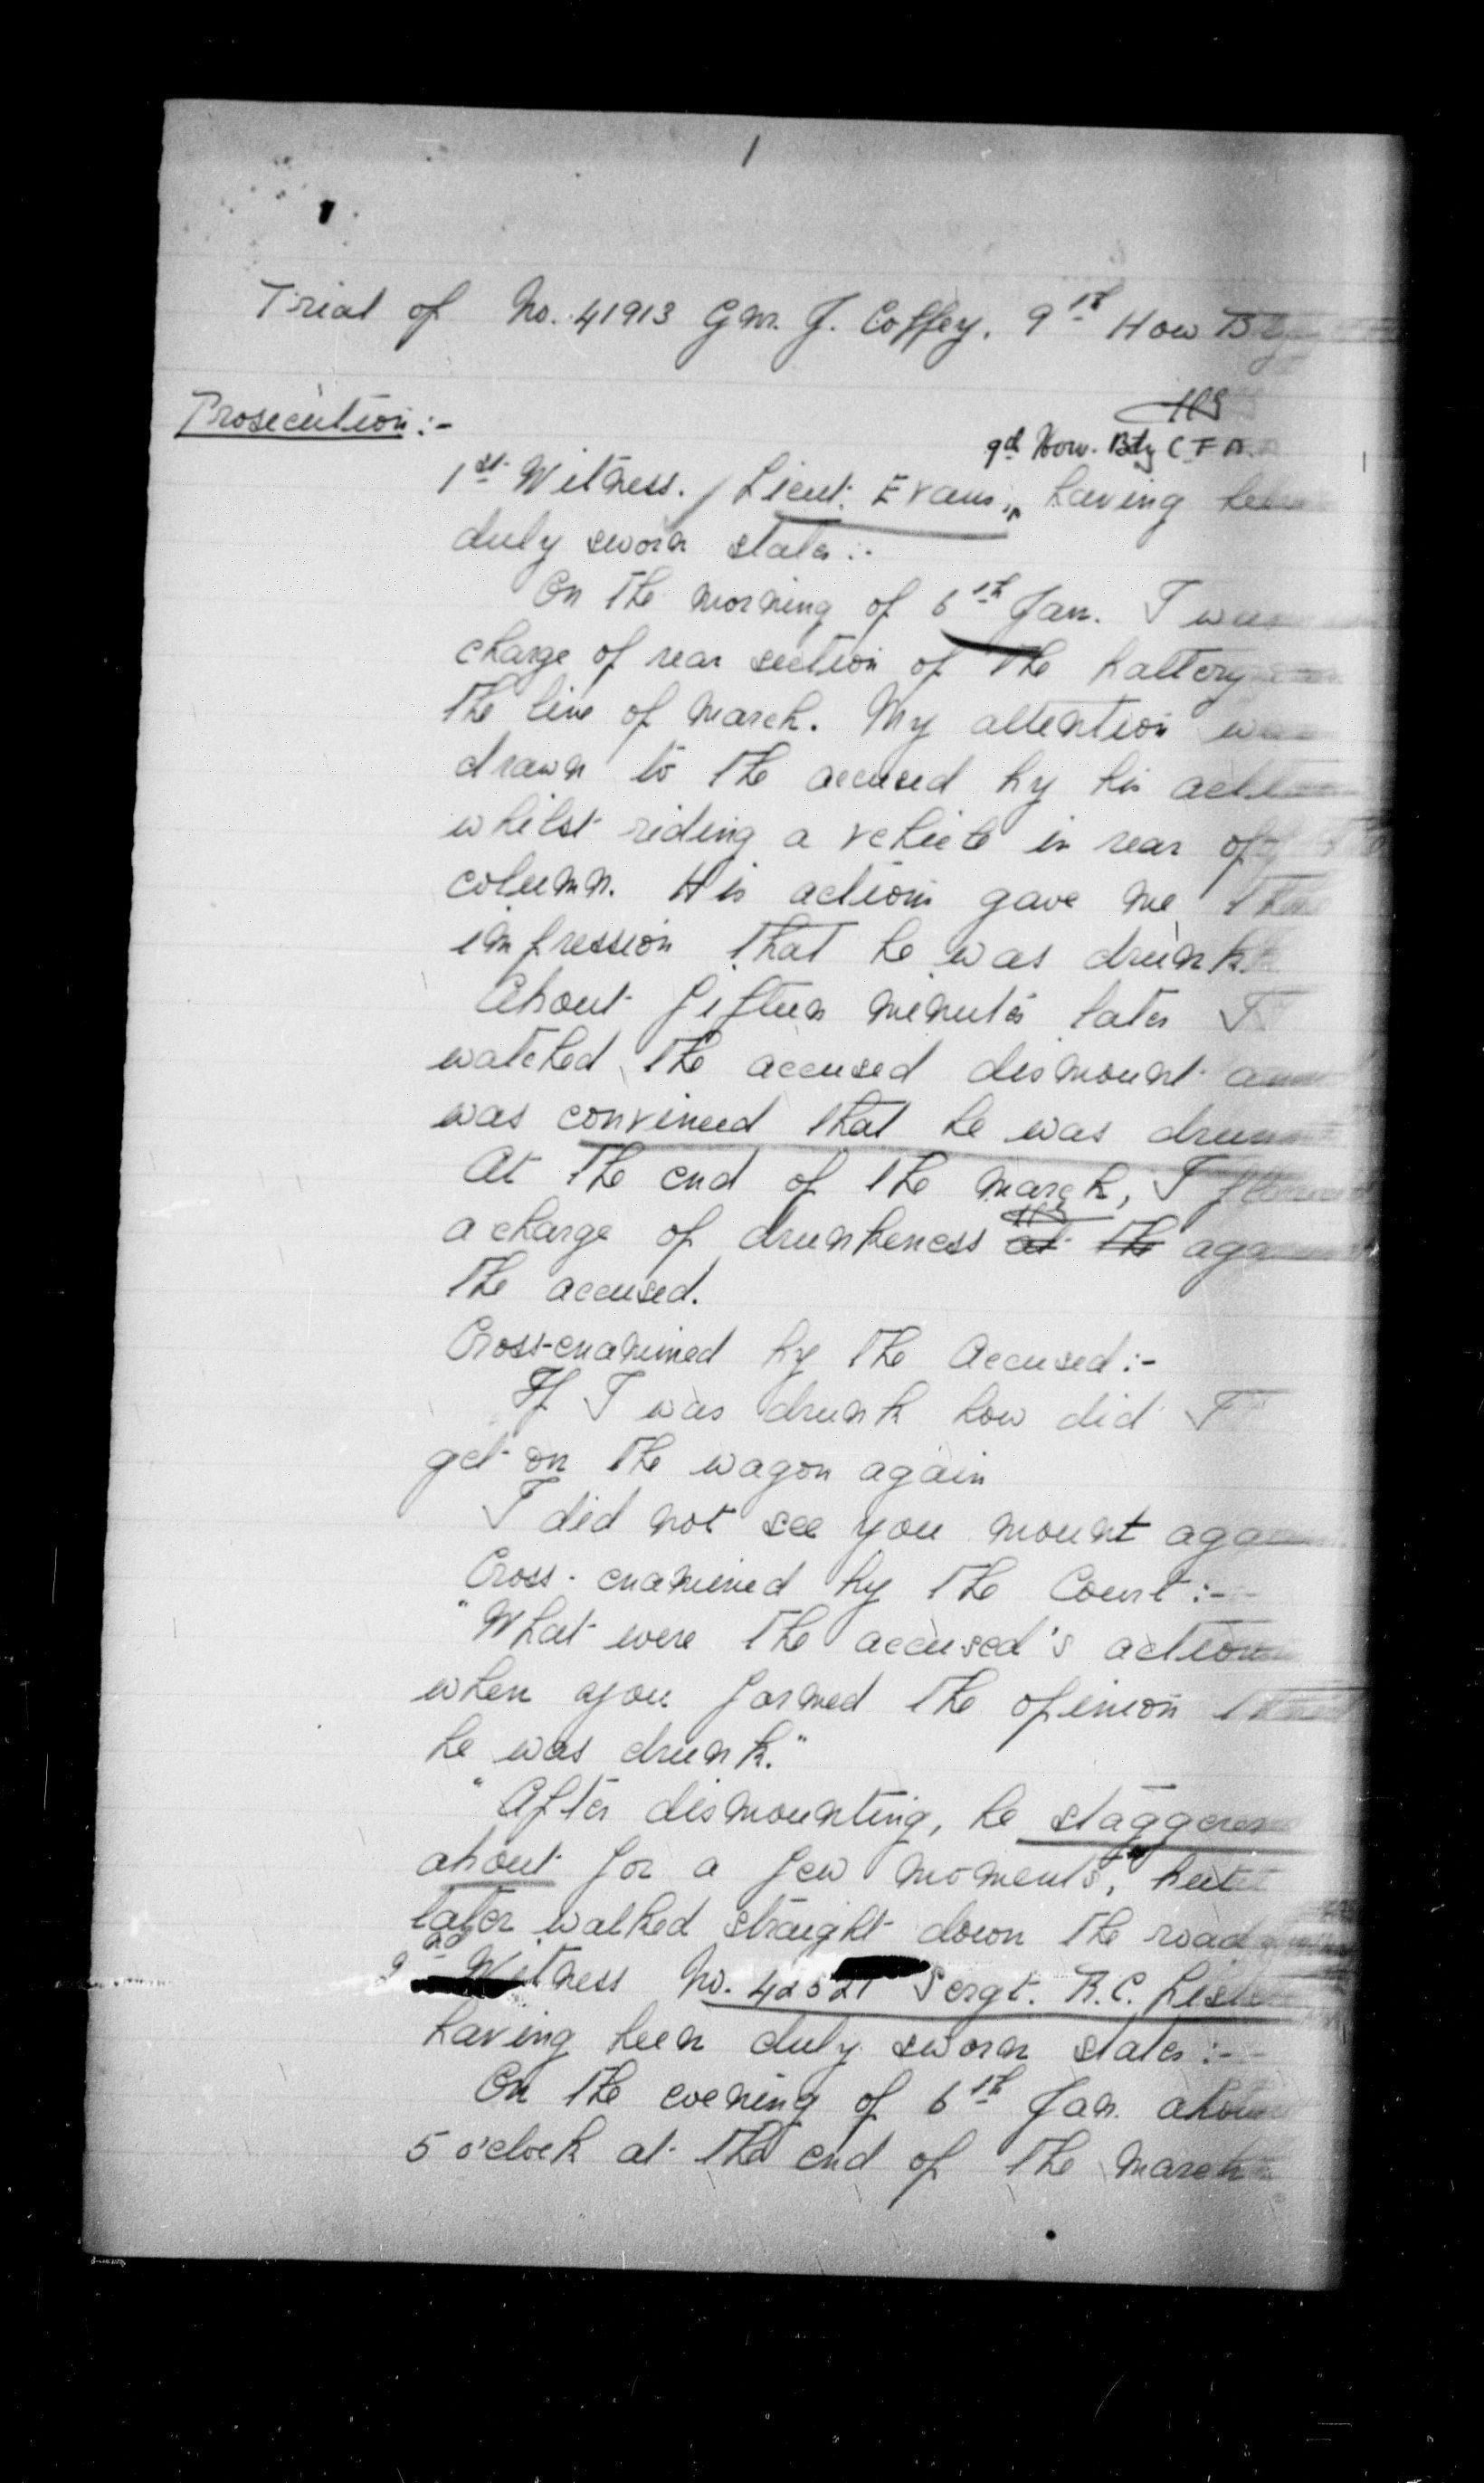 1
Trial of No. 41913 Gnr. J. Coffey. 9th How Bty
Prosecution:-
9th How. Bty C F A.
1st Witness. Lieut. Evans, having been
duly sworn states:-
On the morning of 6th Jan. I was
charge of rear section of the battery
the line of march. My attention was
drawn to the accused by his
whilst riding a vehicle in rear of
column. His actions gave me the
impression that he was drunk.
About fifteen minutes later I
watched the accused dismount and
was convinced that he was drunk
At the end of the march, I
a charge of drunkeness at the against
the accused.
Cross-examined by the Accused:-
If I was drunk how did I
get on the wagon again
I did not see you mount again
Cross-examined by the Court:-
"What were the accused's actions
when you formed the opinion that
he was drunk."
"After dismounting, he staggered
about for a few moments, but
later walked straight down the road
2nd Witness No. 42521 Sergt. R.C.
having been duly sworn states:-
On the evening of 6th Jan. about
5 o'clock at the end of the march